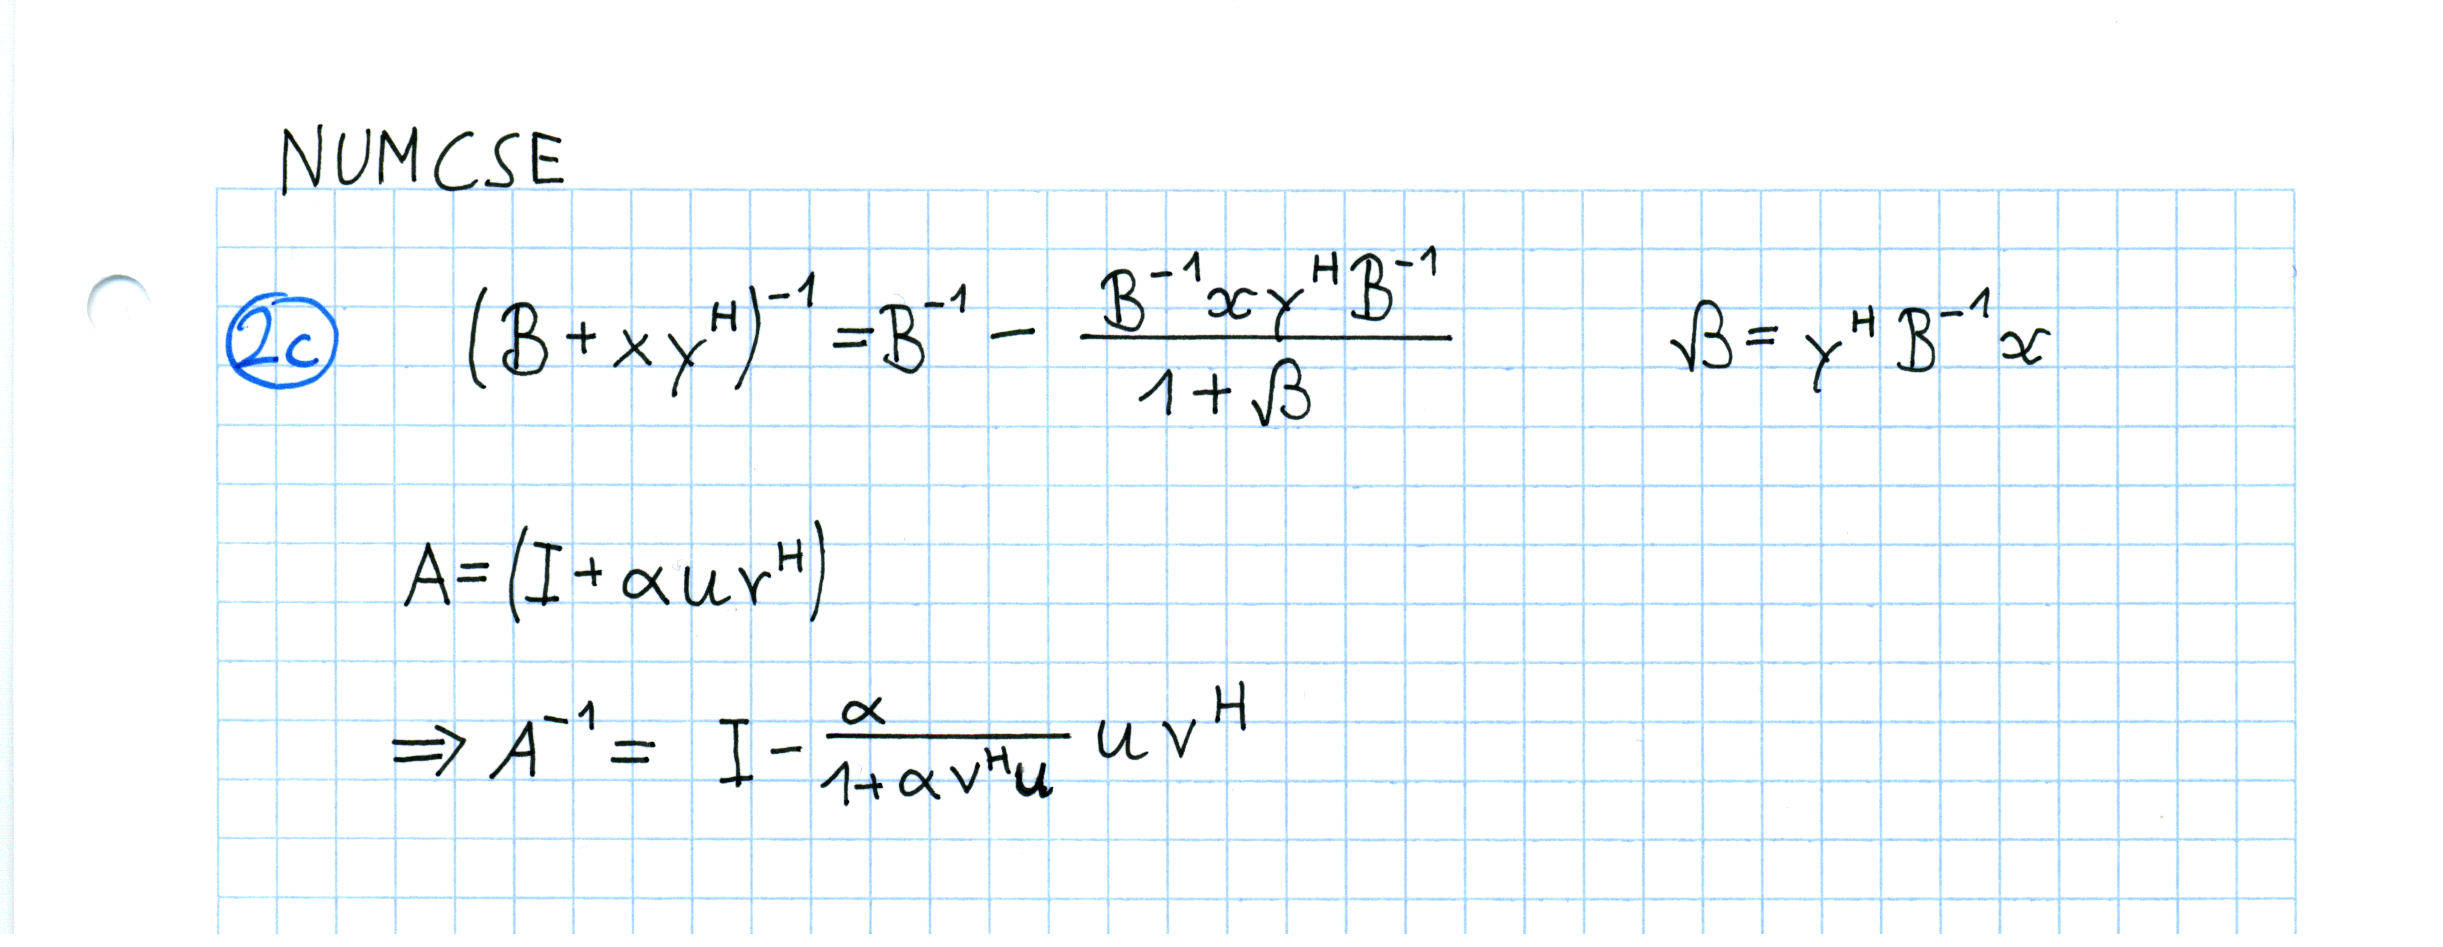 NUMCSE
2c (B + xy^H)^-1 = B^-1 - \frac{B^-1 x y^H B^-1}{1 + β} β = y^H B^-1 x
A = (I + α u v^H)
⇒ A^-1 = I - \frac{α}{1 + α v^H u} u v^H